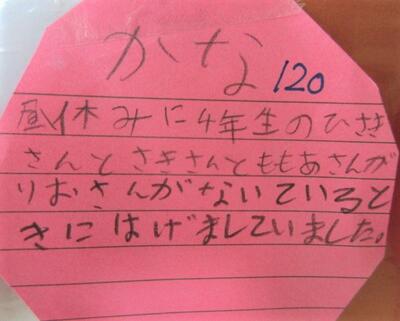 かな
120
昼休みに4年生のひさき
さんとさきさんとももあさんが
りおさんがないているると
きにはげましていました。